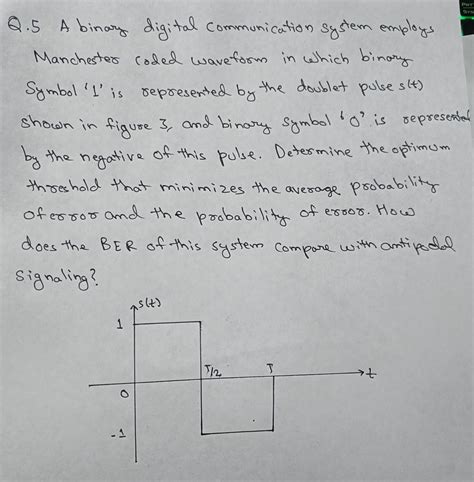 Q.5 A binary digital communication system employs
Manchester coded waveform in which binary
Symbol '1' is represented by the doublet pulse s(t)
shown in figure 3, and binary symbol '0' is represented
by the negative of this pulse. Determine the optimum
threshold that minimizes the average probability
of error and the probability of error. How
does the BER of this system compare with antipodal
signaling?
s(t)
1
T/2
T
t
0
-1